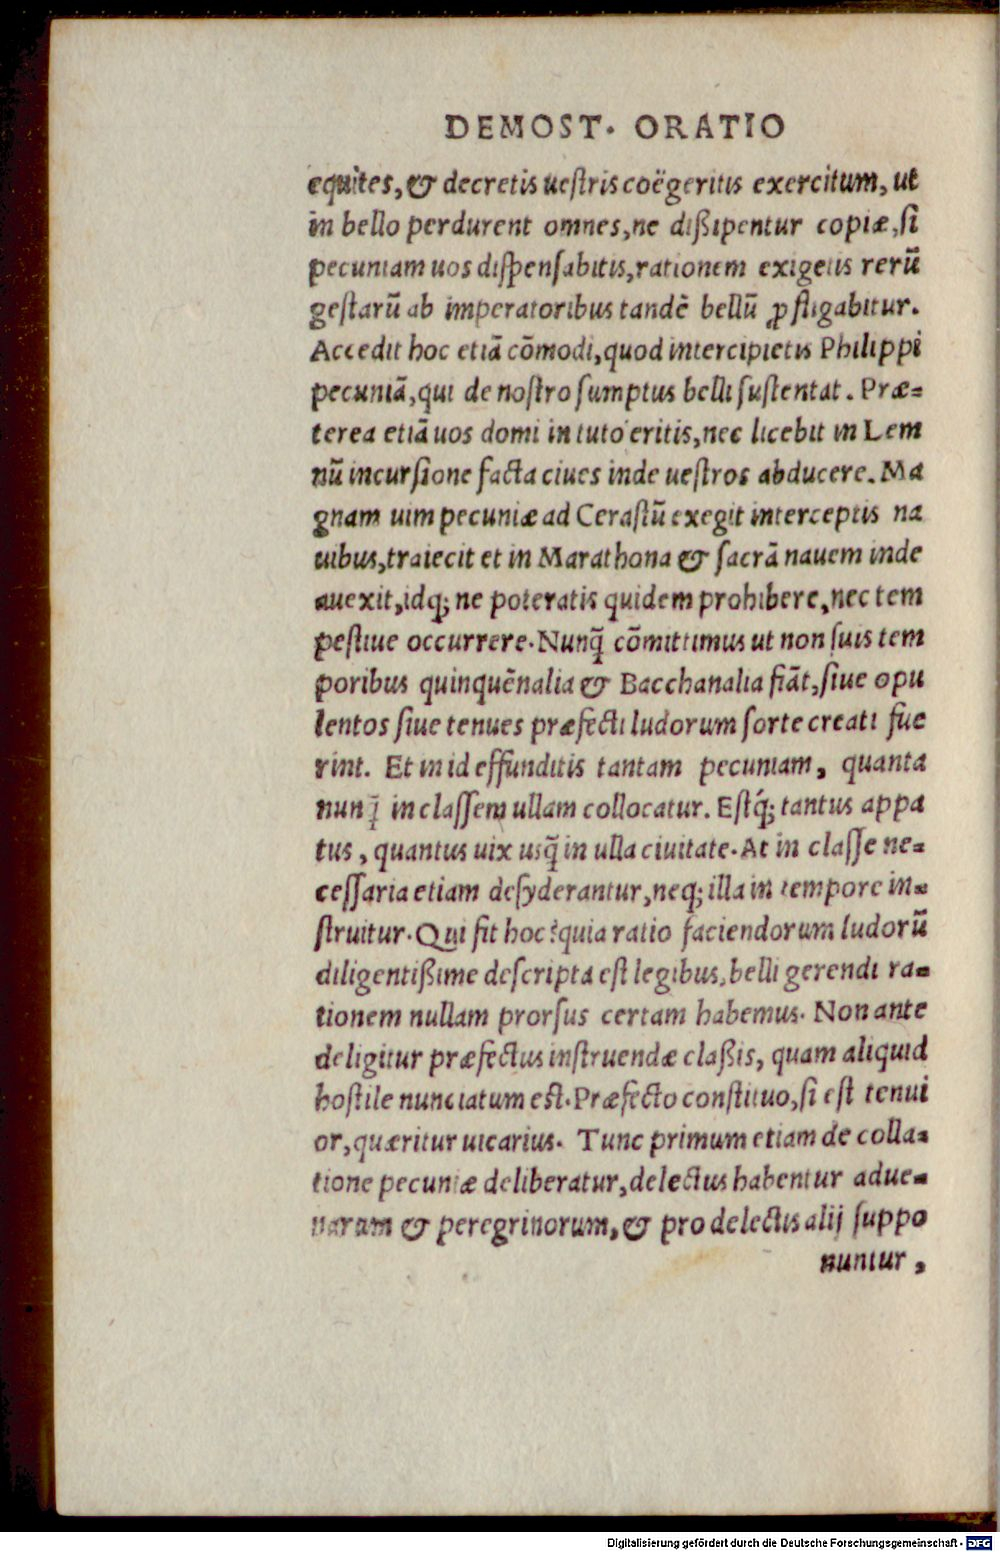 DEMOST. ORATIO
equites, & decretis uestris coëgeritis exercitum, ut
in bello perdurent omnes, ne dißipentur copiæ, si
pecuniam uos dispensabitis, rationem exigetis rerũ
gestarũ ab imperatoribus tandẽ bellũ ꝓfligabitur.
Accedit hoc etiã cõmodi, quod intercipietis Philippi
pecuniã, qui de nostro sumptus belli sustentat. Præ=
terea etiã uos domi in tuto eritis, nec licebit in Lem
nũ incursione facta ciues inde uestros abducere. Ma
gnam uim pecuniæ ad Cerastũ exegit interceptis na
uibus, traiecit et in Marathona & sacrã nauem inde
auexit, idq; ne poteratis quidem prohibere, nec tem
pestiue occurrere. Nunq̃ cõmittimus ut non suis tem
poribus quinquẽnalia & Bacchanalia fiãt, siue opu
lentos siue tenues præfecti ludorum sorte creati fue
rint. Et in id effunditis tantam pecuniam, quanta
nunq̃ in classem ullam collocatur. Estq́; tantus appa
tus, quantus uix usq̃ in ulla ciuitate. At in classe ne=
cessaria etiam desyderantur, neq; illa in tempore in=
struitur. Qui fit hoc? quia ratio faciendorum ludorũ
diligentißime descripta est legibus, belli gerendi ra=
tionem nullam prorsus certam habemus. Non ante
deligitur præfectus instruendæ claßis, quam aliquid
hostile nunciatum est. Præfecto constituo, si est tenui
or, quæritur uicarius. Tunc primum etiam de colla=
tione pecuniæ deliberatur, delectus habentur adue=
narum & peregrinorum, & pro delectis alij suppo
nuntur,
Digitalisierung gefördert durch die Deutsche Forschungsgemeinschaft - DFG